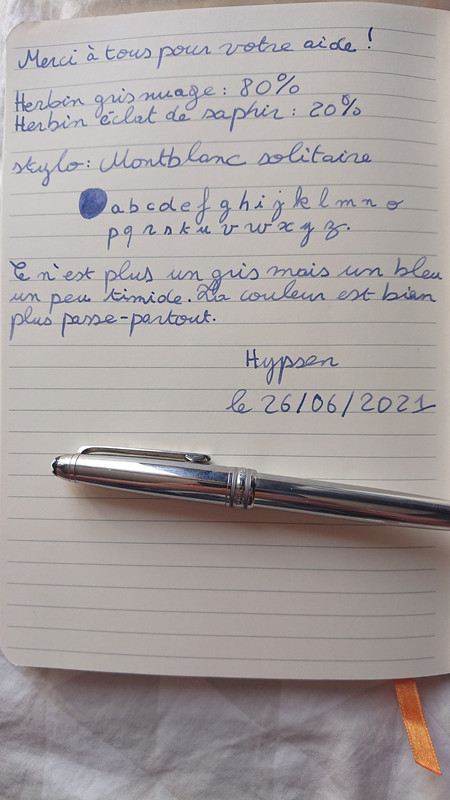 Merci à tous pour votre aide !
Herbin gris nuage : 80%
Herbin éclat de saphir : 20%
stylo : Montblanc solitaire
a b c d e f g h i j k l m n o
p q r s t u v w x y z.
Ce n'est plus un gris mais un bleu
un peu timide. La couleur est bien
plus passe-partout.
Hypsen
le 26/06/2021